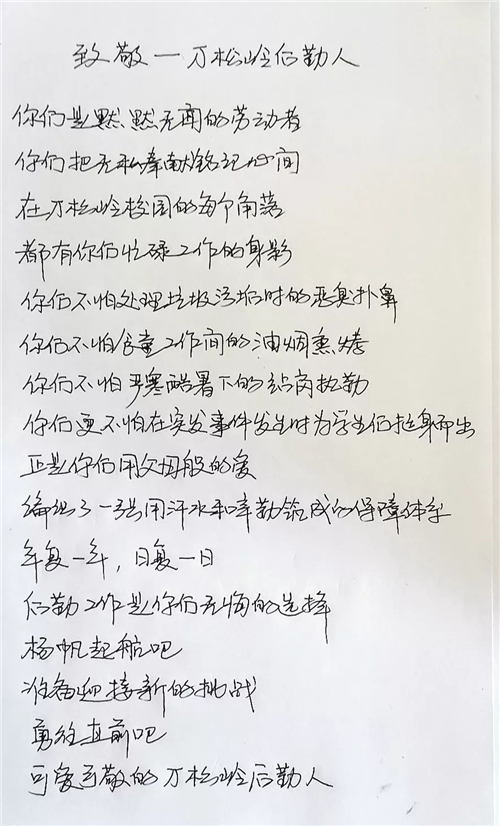 致敬一万松岭后勤人
你们是默默无闻的劳动者
你们把无私奉献铭记心间
在万松岭校园的每个角落
都有你们忙碌工作的身影
你们不怕处理垃圾污垢时的恶臭扑鼻
你们不怕食堂工作间的油烟熏烤
你们不怕严寒酷暑下的站岗执勤
你们更不怕在突发事件发生时为学生们挺身而出
正是你们用父母般的爱
编织了一张用汗水和辛勤筑成的保障体系
年复一年，日复一日
后勤工作是你们无悔的选择
杨帆起航吧
准备迎接新的挑战
勇往直前吧
可爱可敬的万松岭后勤人